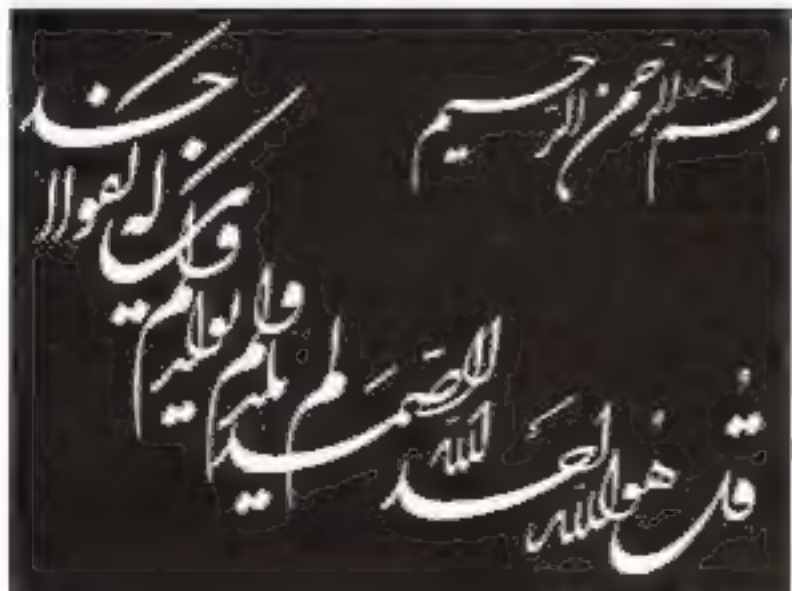 بسم الله الرحمن الرحيم
قُل هُوَ الله احد
الله الصمد
لم يلد
و لم يولد
و لم يكن
له كفوا احد